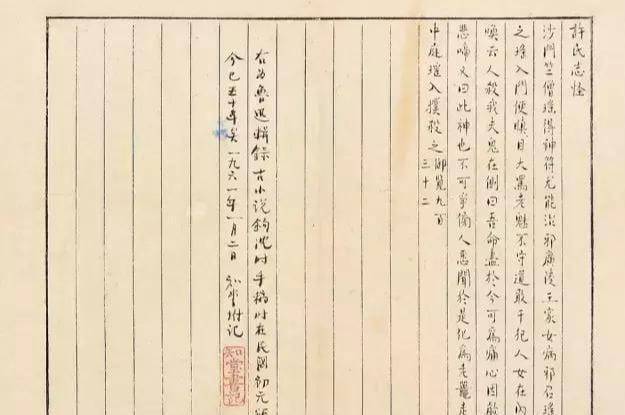 許氏志怪
沙門竺僧瑤得神符尤能治邪廣陵王家女病邪召瑤
之瑤入門便瞋目大罵老魅不守道敢干犯人女在內
喚云人殺我夫鬼在側曰吾命盡於今可為痛心因
悲啼又曰此神也不可爭傍人悉聞於是化為老鼉走
中庭瑤入撲殺之 御覽九百
三十二
右为魯迅輯錄古小说鈎沈时手稿时在民國初元
今已五十年矣一九六一年一月二日 知堂附记
知堂書記